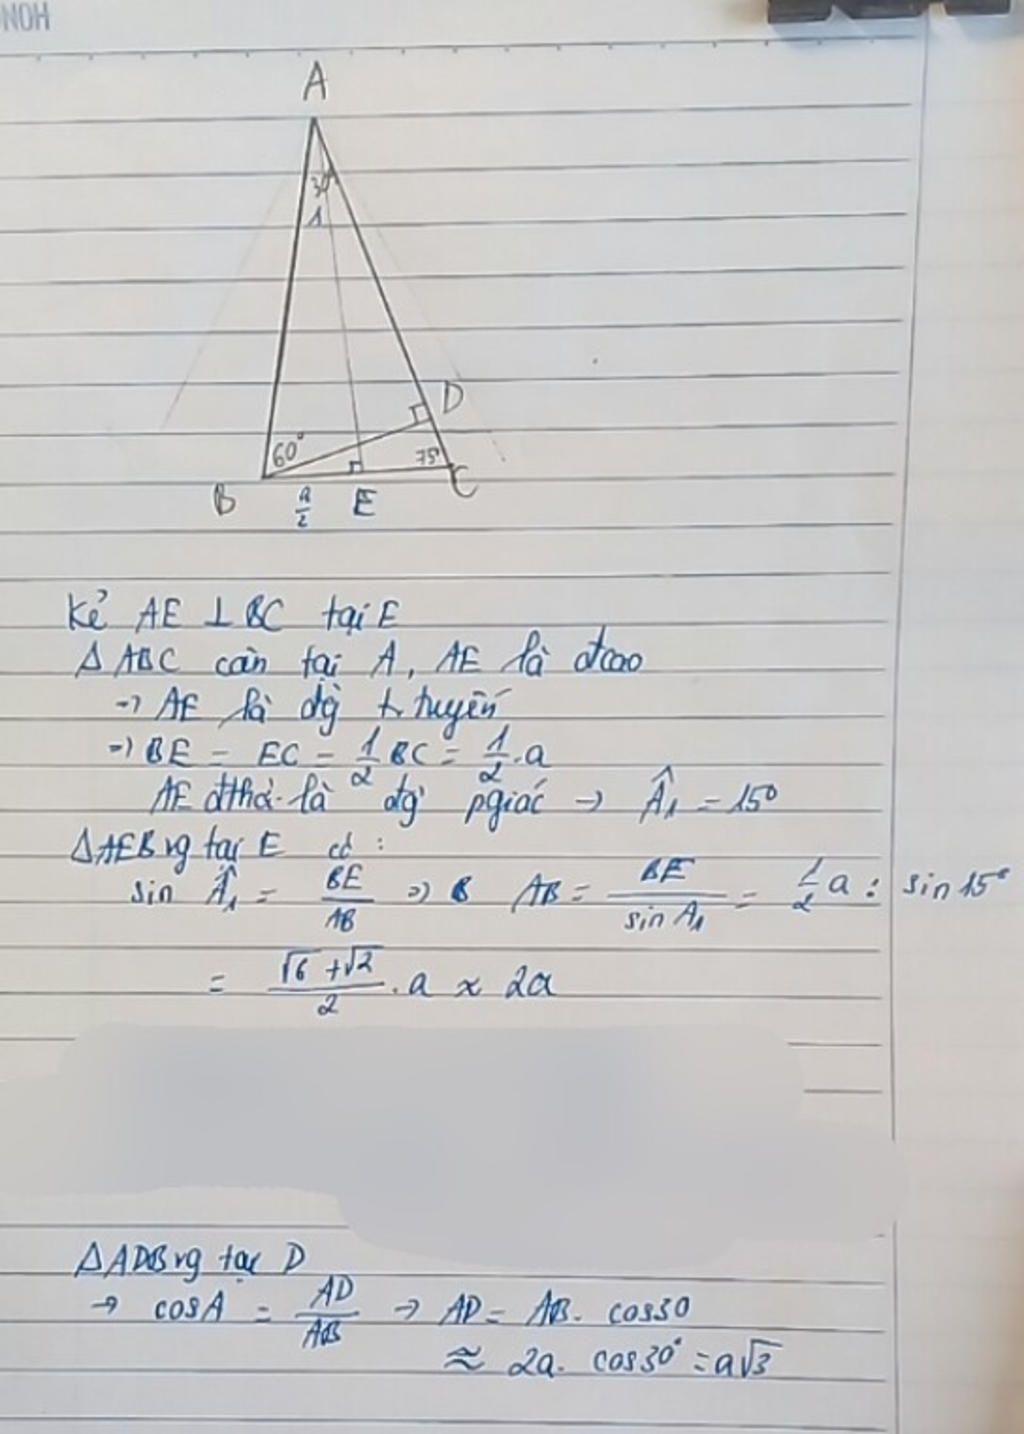 HON
A
30°
1
D
60°
75°
B
a/2
E
C
Kẻ AE ⊥ BC tại E
Δ ABC cân tại A, AE là đcao
→ AE là đg̀ tr tuyến
=> BE = EC = 1/2 BC = 1/2 . a
AE đthời là đg̀ pgiác → Â₁ = 15°
ΔAEB vg tại E có :
sin Â₁ = BE/AB => B AB = BE/sin A₁ = 1/2 a : sin 15°
= (√6 + √2)/2 . a ≈ 2a
ΔADB vg tại D
→ cosA = AD/AB → AD = AB. cos30
≈ 2a. cos30° = a√3